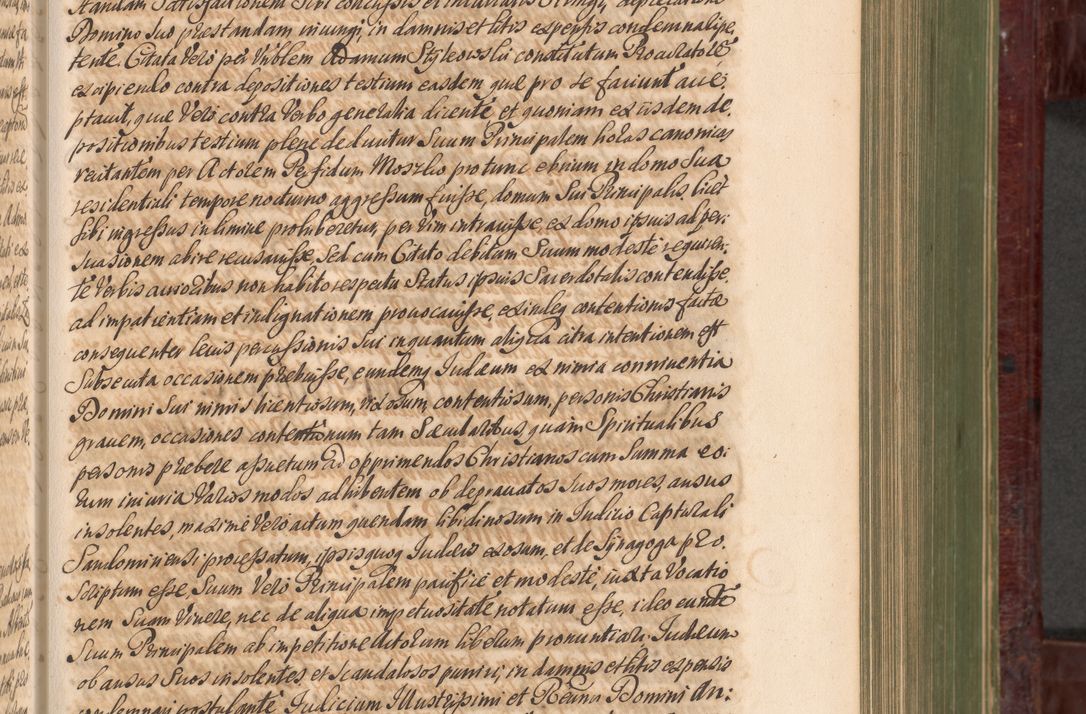 Domino suo præstandam invicingi, in damnis et litis expensis condemnari, pe,
tente. Citata vero per Nobilem Adamum Stykowski constitutum Procuratorē,
excipiendo contra depositiones testium easdem quæ pro se faciunt acce,
ptavit, quæ vero contra verbo generalia dicentē, et quoniam ex iisdem de,
positionibus testium plene deducitur Suum Principalem horas canonicas
recitantem per Actorem Perfidum Moszko pro tunc ebrium in domo sua
residentiali tempore nocturno aggressum fuisse, domum Sui Principalis, licet
sibi ingressus in limine prohiberetur, per vim intrauisse, ex domo ipsius ad per,
suasionem abire recusauisse, sed cum Citato debitam Suum modeste requiren,
te verbis acrioribus non habito respectu Status ipsius Sacerdotalis contendisse
ad impatientiam et indignationem prouocauisse, exindeq contentionis factæ
consequenter leuis percussionis sui in quantum aliqua citra intentionem est
Subsecuta occasionem præbuisse, eundemq Judæum ex nimia conniuentia
Domini Sui nimis licentiosum, rixosum, contentiosum, personis Christianis
grauem, occasiones contentionum tam Sæcularibus quam Spiritualibus
personis præbere assuetum ad opprimendos Christianos cum Summa eo,
rum iniuria varios modos adhibentem ob deprauatos suos mores, ausus
insolentes, maxime vero actum quendam libidinosum in Judicio Capturali
Sandomiriensi processatum, ipsisquoq Judæis exosum, et de Synagoga pro,
scriptum esse, Suum vero Principalem pacifice et modeste, iuxta vocatio
nem Suam vivere, nec de aliqua impetuositate notatum esse, ideo eundē
Suum Principalem ab impetitione Actorum liberum pronuntiari Judæum
ob ausus Suos insolentes et scandalosos puniri, in damnis et litis expensis
condemnari postulante Judicium Illustrissimi et Reuñd Domini An: